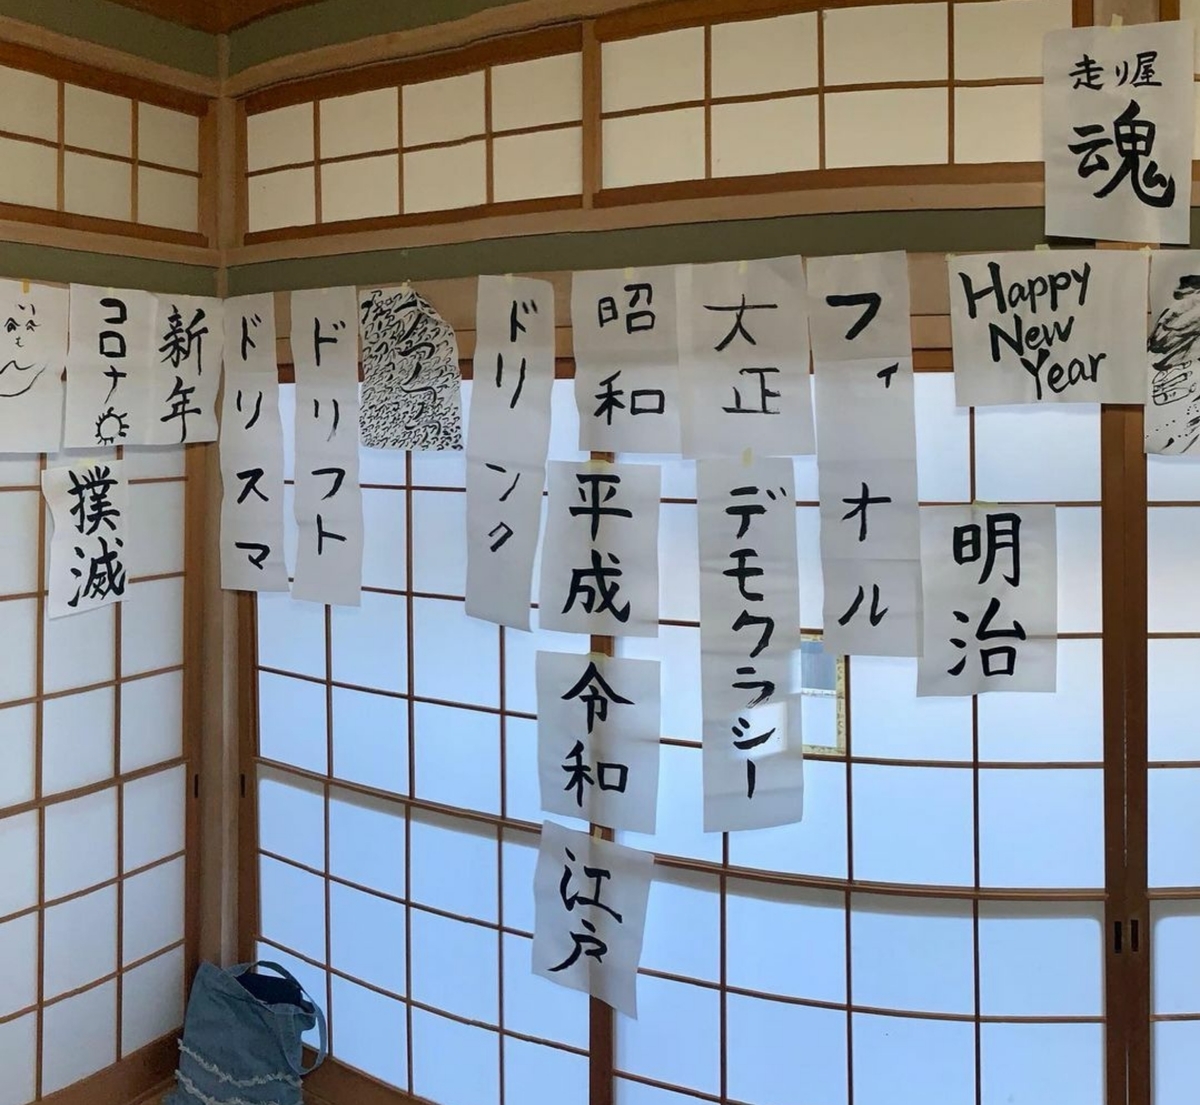 走り屋
魂
Happy
New
Year
明治
フィオル
大正
デモクラシー
昭和
平成
令和
江戸
ドリンク
ドリフト
ドリスマ
新年
コロナ
撲滅